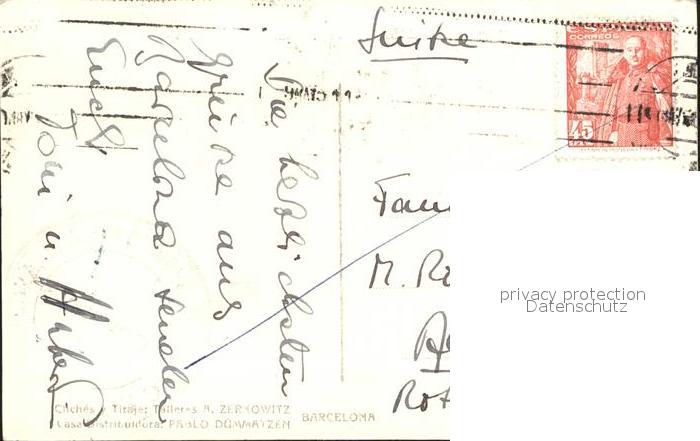 Suisse
CORREOS
45
Die herzlichsten
Grüsse aus
Barcelona senden
Euch
Toni u. Hubert
Fam
M. Re
Rot
privacy protection
Datenschutz
Clichés y Tiraje: Talleres A. ZERKOWITZ
Casa Distribuidora: PABLO DÜMMATZEN BARCELONA